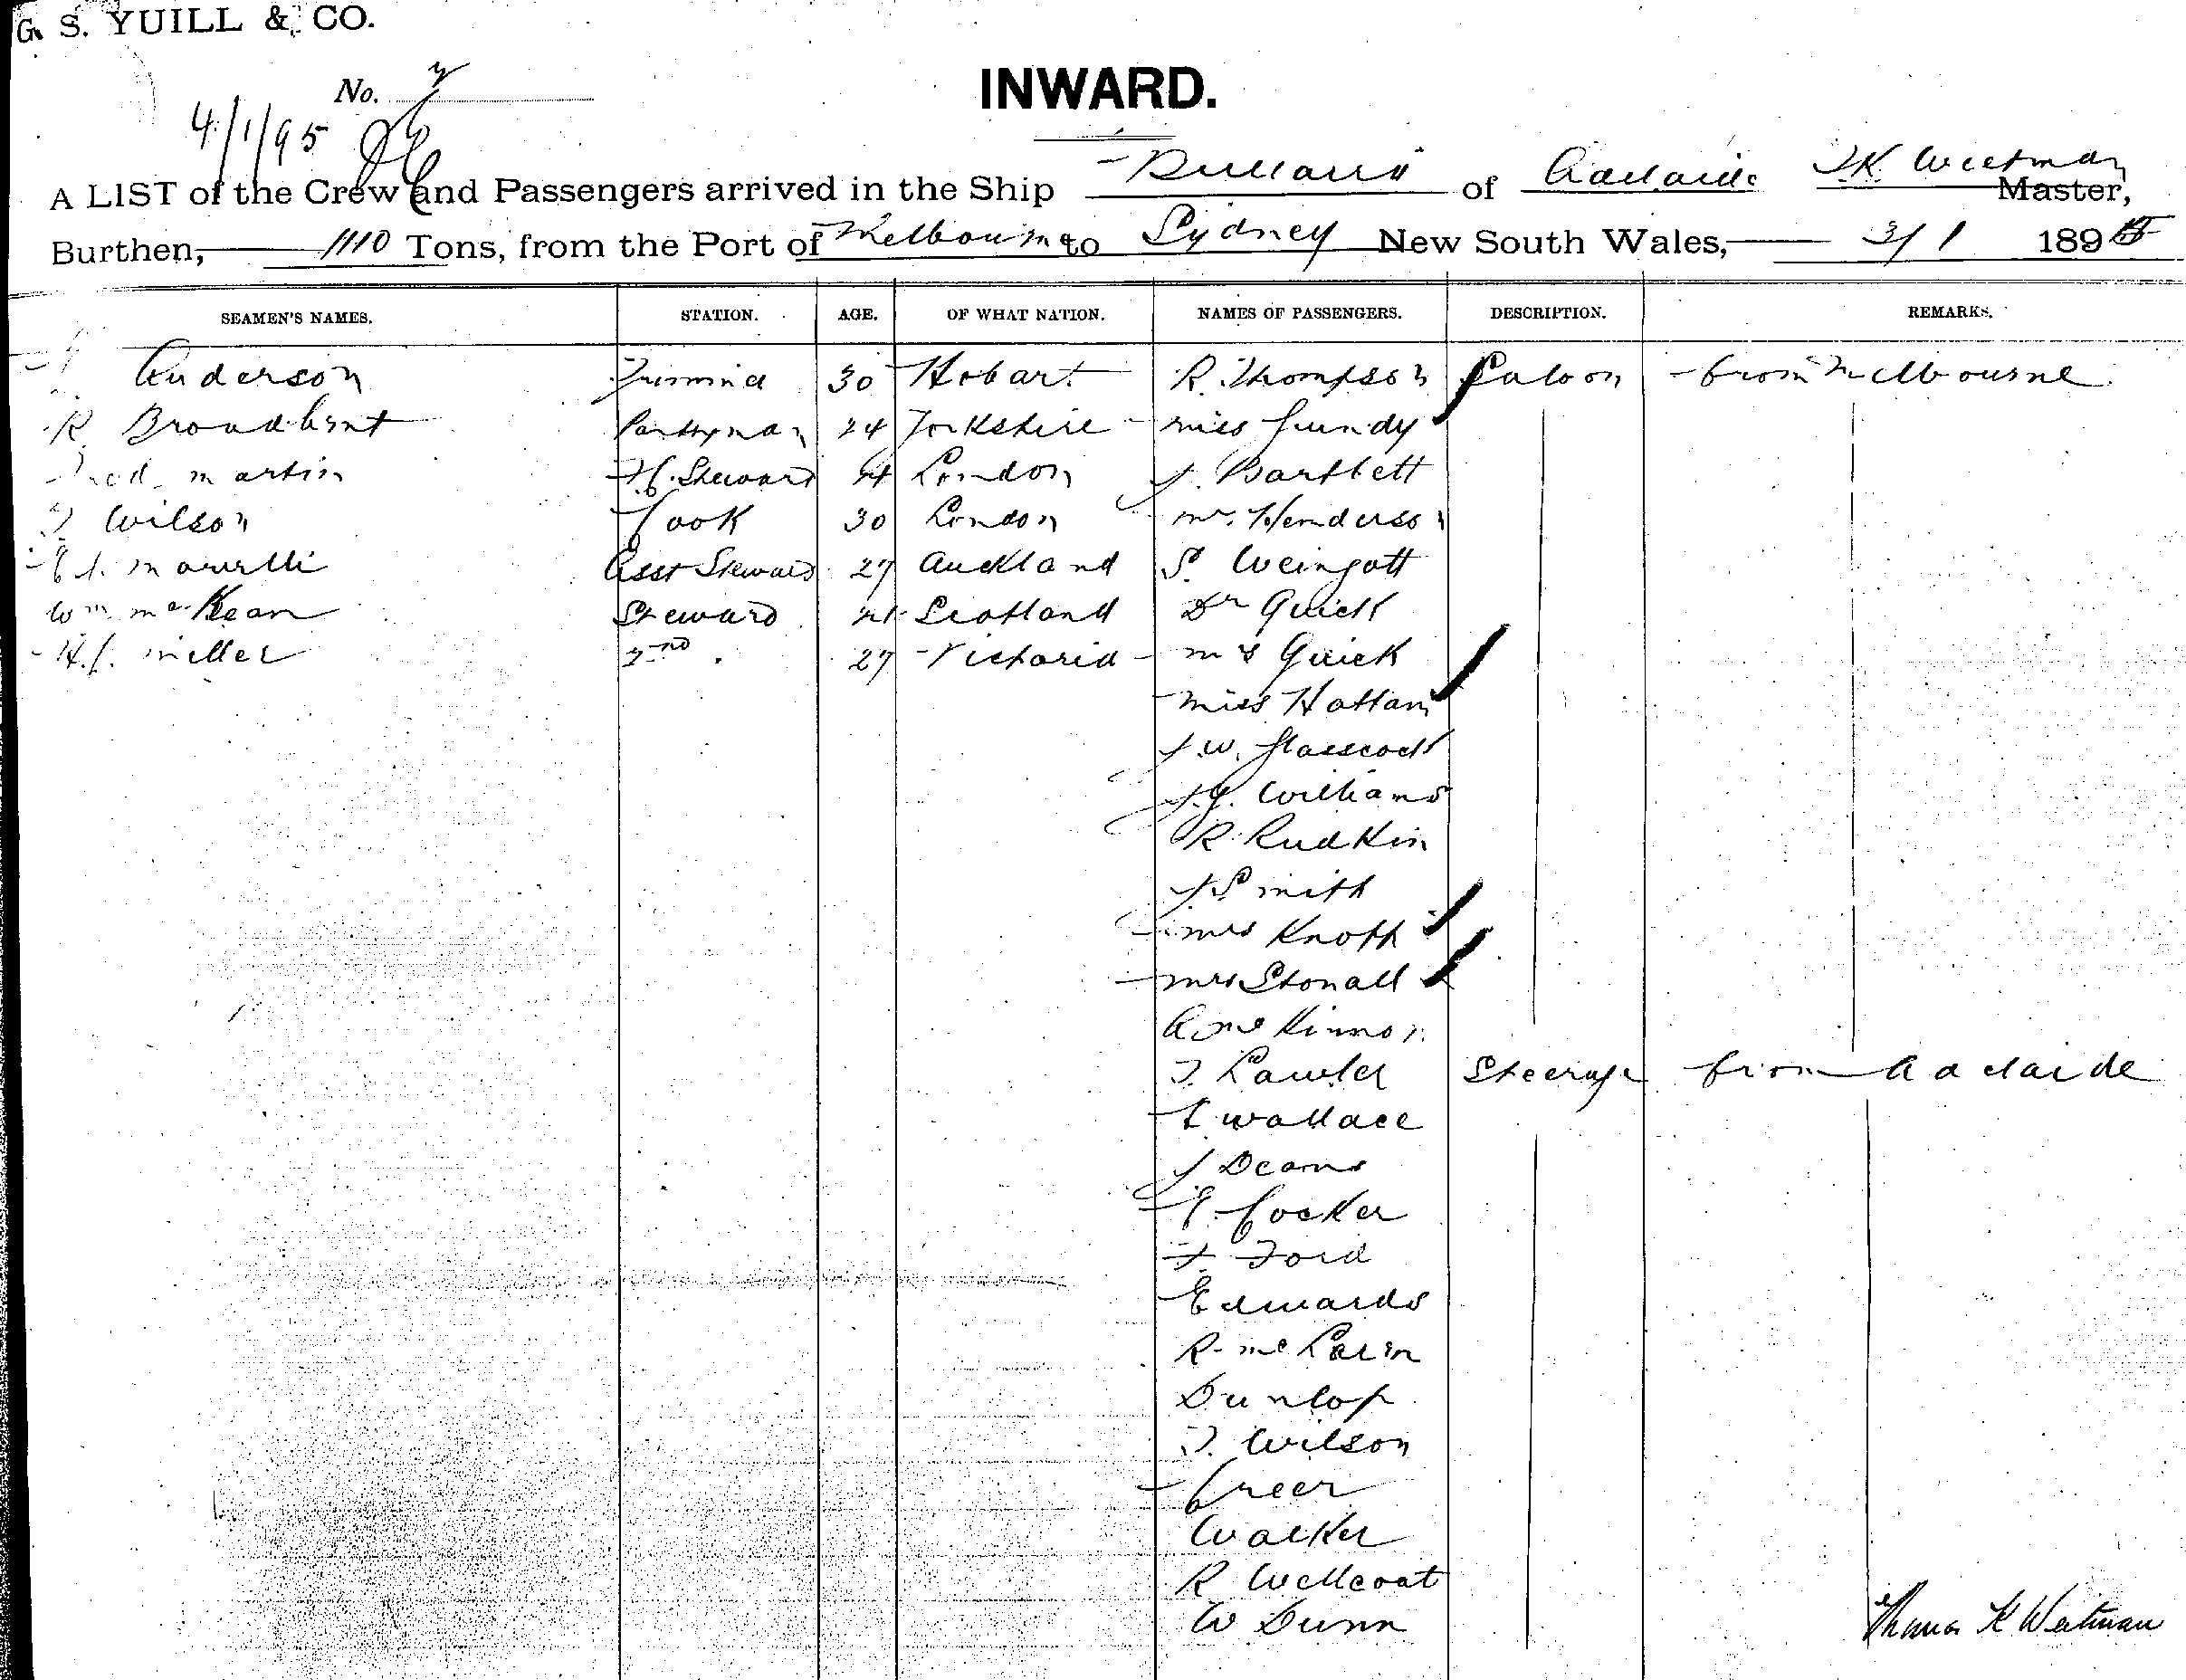 G. S. YUILL & CO.
No. 7
INWARD.
4/1/95
A LIST of the Crew and Passengers arrived in the Ship Bullarra of Adelaide T.K. Weetman Master,
Burthen, 1110 Tons, from the Port of Melbourne to Sydney New South Wales, 3/1 1895
SEAMEN'S NAMES. STATION. AGE. OF WHAT NATION. NAMES OF PASSENGERS. DESCRIPTION. REMARKS.
Anderson 30 Hobart R. Thompson Saloon from Melbourne
R. Broadbent Pantryman 24 Yorkshire Miss Gundy
Martin F.C. Steward London J. Bartlett
T Wilson Cook 30 London Mr. Henderson
Asst Steward 27 Auckland S. Weingott
Wm McKean Steward 21 Scotland Dr Quick
H.J. Miller 2nd " 27 Victoria Mrs Quick
Miss Hattam
J.W. Glasscock
J.G. Williams
R. Rudkin
J Smith
Mrs Knopp
Mrs Stonall
A McKinnon
T. Lawler Steerage from Adelaide
L Wallace
J Deans
E. Cocker
F. Ford
Edwards
R. McLaren
Dunlop
T. Wilson
Greer
Walker
R Wellcoat
W Dunn
Thomas K Weetman